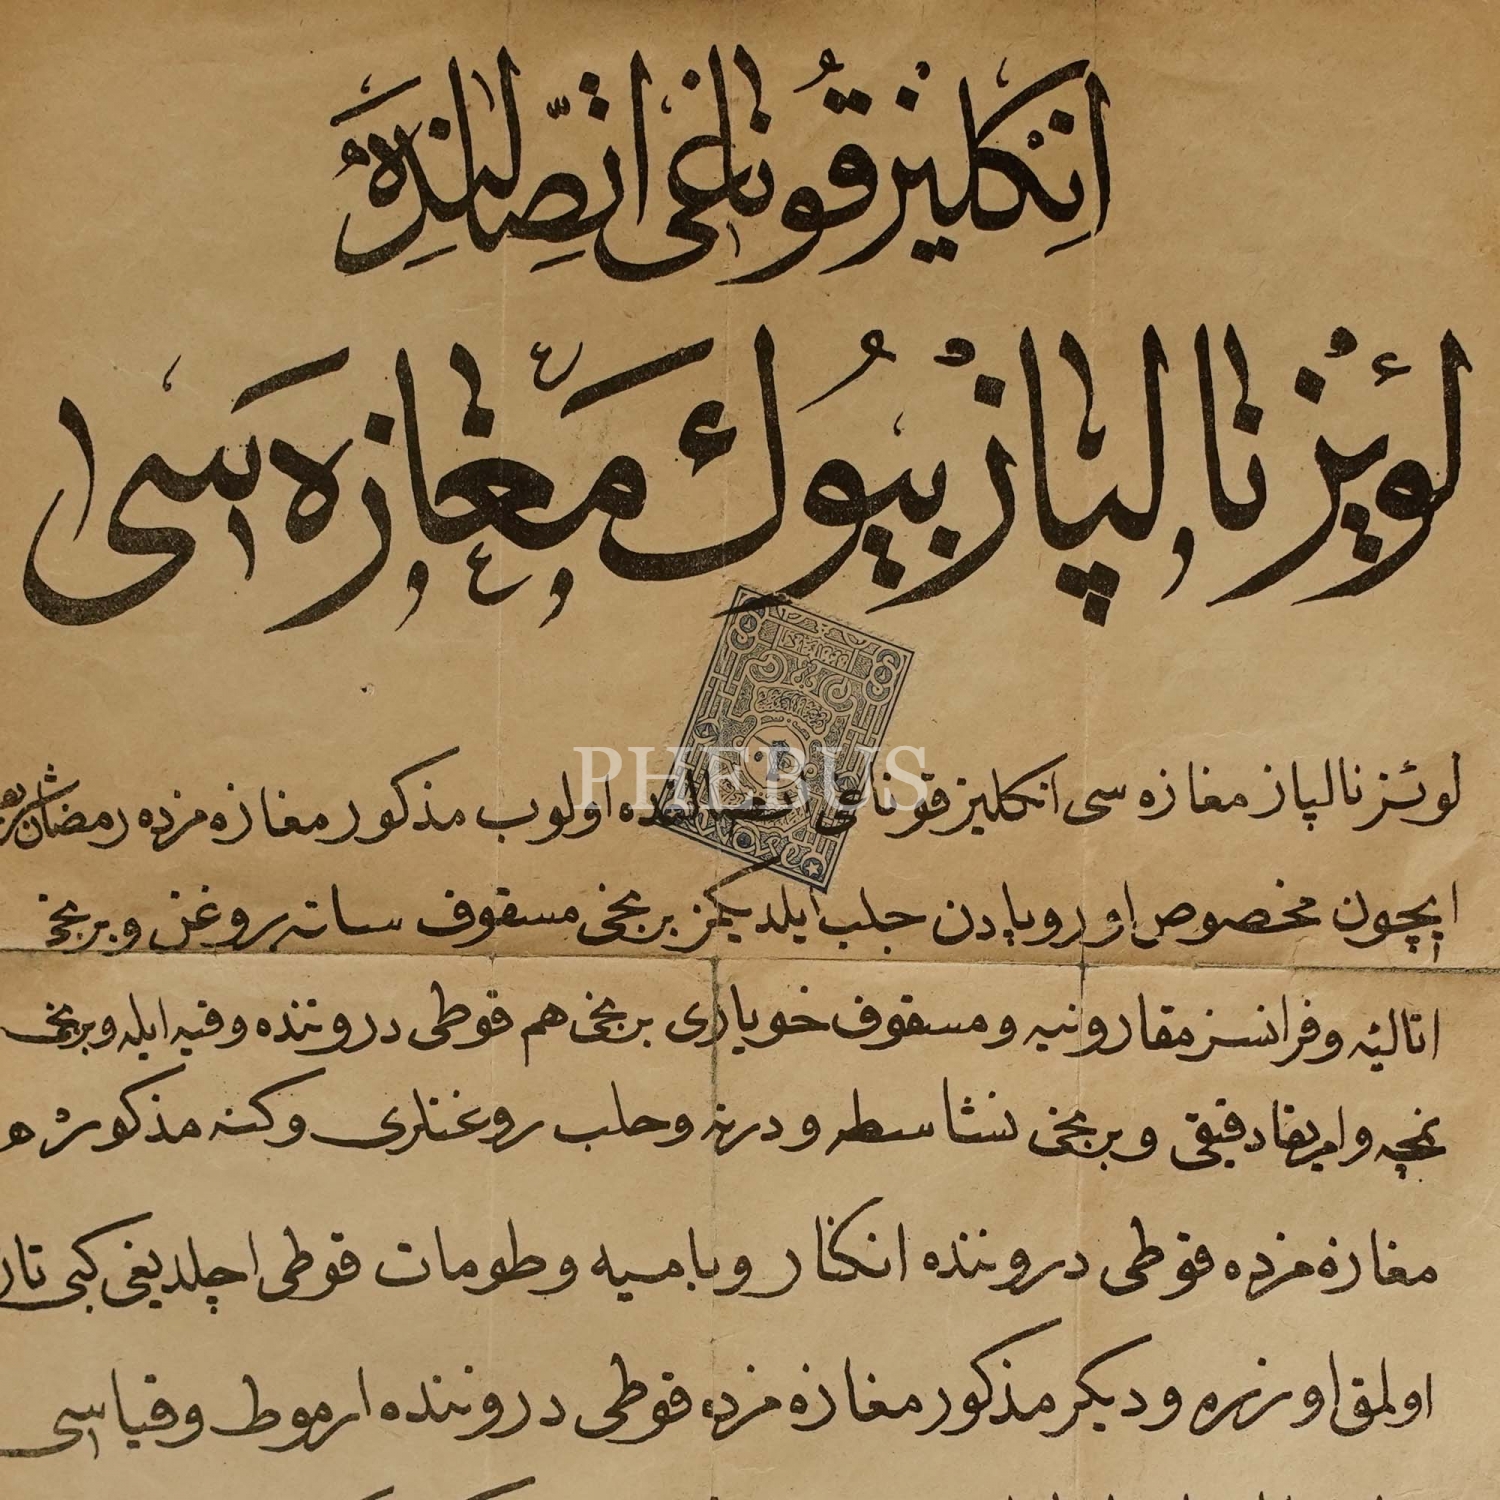 انكليز قوناغی اتصالنده
لوئيز نالپاز بيوك مغازه سی
لوئز نالپاز مغازه سی انكليز قوناغی اتصالنده اولوب مذكور مغازه مزده رمضان شريف
ايچون مخصوص اوروپادن جلب ايلديكمز برنجی مسقوف ساته روغن و برنجی
اتاليه و فرانسز مقارونيه و مسقوف خوياری برنجی هم قوطی دروننده وقيه ايله و برنجی
نچه و امريقا دقيقی و برنجی نشاسطه و درنه و حلب روغنلری و كنه مذكور
مغازه مزده قوطی دروننده انكنار و باميه و طومات قوطی اچلديغی كبی تازه
اولمق اوزره و ديكر مذكور مغازه مزده قوطی دروننده ارموط و قياسی
PHEBUS